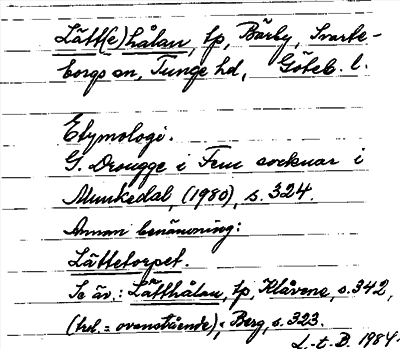 Lätt(e)hålan, tp, Bärby, Svarte-
borgs sn, Tunge hd, Göteb. l.
Etymologi.
G. Drougge i Fem socknar i
Munkedal, (1980), s. 324.
Annan benämning:
Lättetorpet.
Se äv.: Lätthålan, tp, Klåvene, s. 342,
(bel. = ovanstående), Berg, s. 323.
L-t. B. 1984.